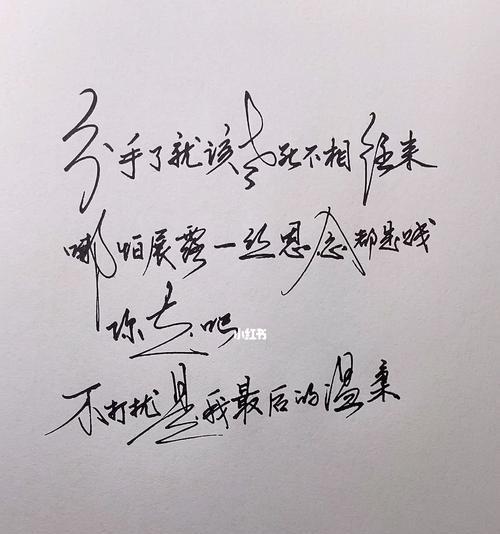 分手了就该老死不相往来
哪怕展露一丝思念都是贱
你走吧
小红书
不打扰是我最后的温柔